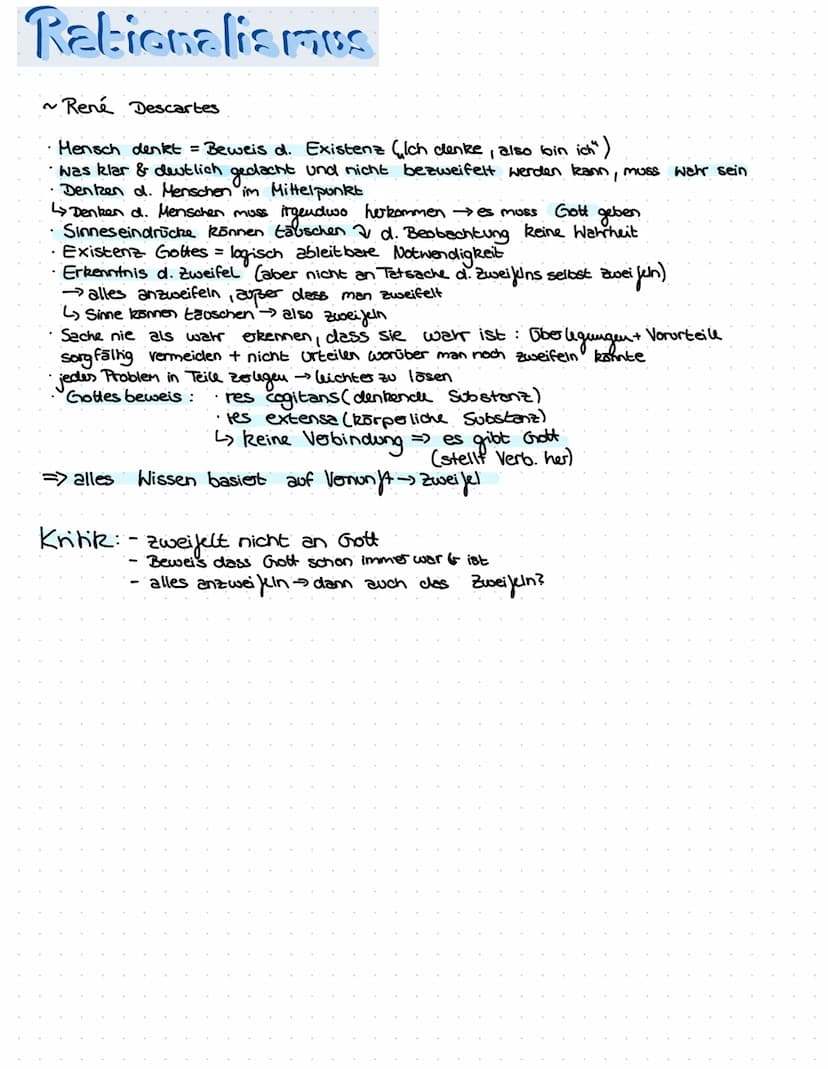 Rationalismus
~ René Descartes
· Mensch denkt = Beweis d. Existenz („Ich denke, also bin ich")
· was klar & deutlich gedacht und nicht bezweifelt werden kann, muss wahr sein
· Denken d. Menschen im Mittelpunkt
↳ Denken d. Menschen muss irgendwo herkommen → es muss Gott geben
· Sinneseindrücke können täuschen d. Beobachtung keine Wahrheit
· Existenz Gottes = logisch ableitbare Notwendigkeit
· Erkenntnis d. Zweifel (aber nicht an Tatsache d. Zweifelns selbst zweifeln)
→ alles anzuweifeln, außer dass man zweifelt
↳ Sinne können täuschen → also zweifeln
· Sache nie als wahr erkennen, dass sie wahr ist : Überlegungen + Vorurteile
sorgfältig vermeiden + nicht urteilen worüber man noch zweifeln könnte
· jedes Problem in Teile zerlegen → leichter zu lösen
· Gottesbeweis : · res cogitans (denkende Substanz)
· res extensa (körperliche Substanz)
↳ keine Verbindung => es gibt Gott
(stellt Verb. her)
=> alles Wissen basiert auf Vernunft → Zweifel
Kritik: - zweifelt nicht an Gott
- Beweis dass Gott schon immer war & ist
- alles anzweifeln → dann auch das Zweifeln?